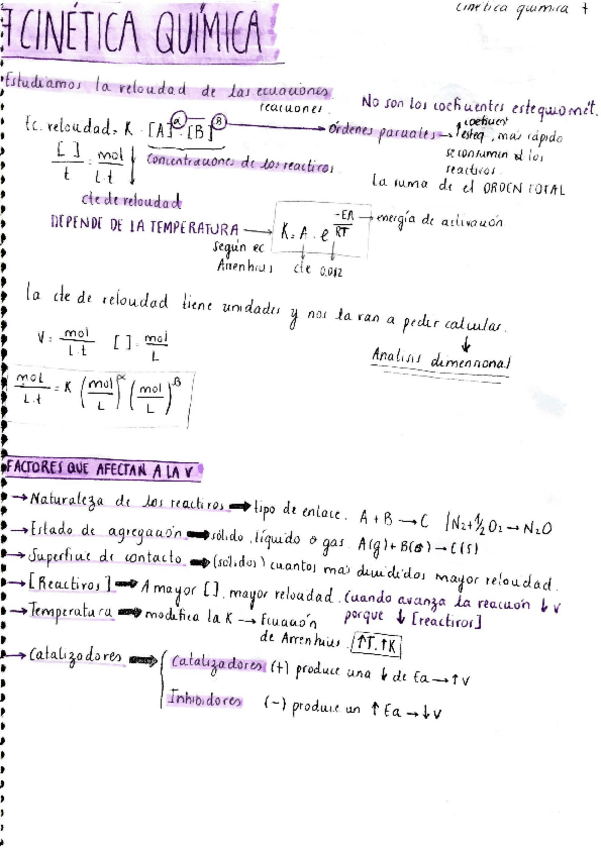 cinética química 7
7 CINÉTICA QUÍMICA
Estudiamos la velocidad de las ecuaciones
reacciones.
No son los coeficientes estequiomét.
Ec. velocidad = K · [A]^α [B]^β → órdenes parciales → ↑ coeficient esteq, más rápido
se consumen los
reactivos.
La suma de el ORDEN TOTAL
[ ]/t = mol/L·t
concentraciones de los reactivos.
cte de velocidad
DEPENDE DE LA TEMPERATURA → K = A · e^(-EA/RT) → energía de activación
según ec
Arrenhius
cte 0.082
La cte de velocidad tiene unidades y nos la van a pedir calcular.
V = mol/L·t [ ] = mol/L
Análisis dimensional
mol/L·t = K (mol/L)^α (mol/L)^β
FACTORES QUE AFECTAN A LA V
→ Naturaleza de los reactivos → tipo de enlace. A + B → C | N₂ + ½O₂ → N₂O
→ Estado de agregación → sólido, líquido o gas. A(g) + B(s) → C(s)
→ Superficie de contacto → (sólidos) cuantos más divididos mayor velocidad.
→ [Reactivos] → A mayor [ ], mayor velocidad. Cuando avanza la reacción ↓ v
porque ↓ [reactivos]
→ Temperatura → modifica la K → Ecuación
de Arrenhius. ↑T, ↑K
→ Catalizadores → { Catalizadores (+) produce una ↓ de Ea → ↑ v
Inhibidores (-) produce un ↑ Ea → ↓ v